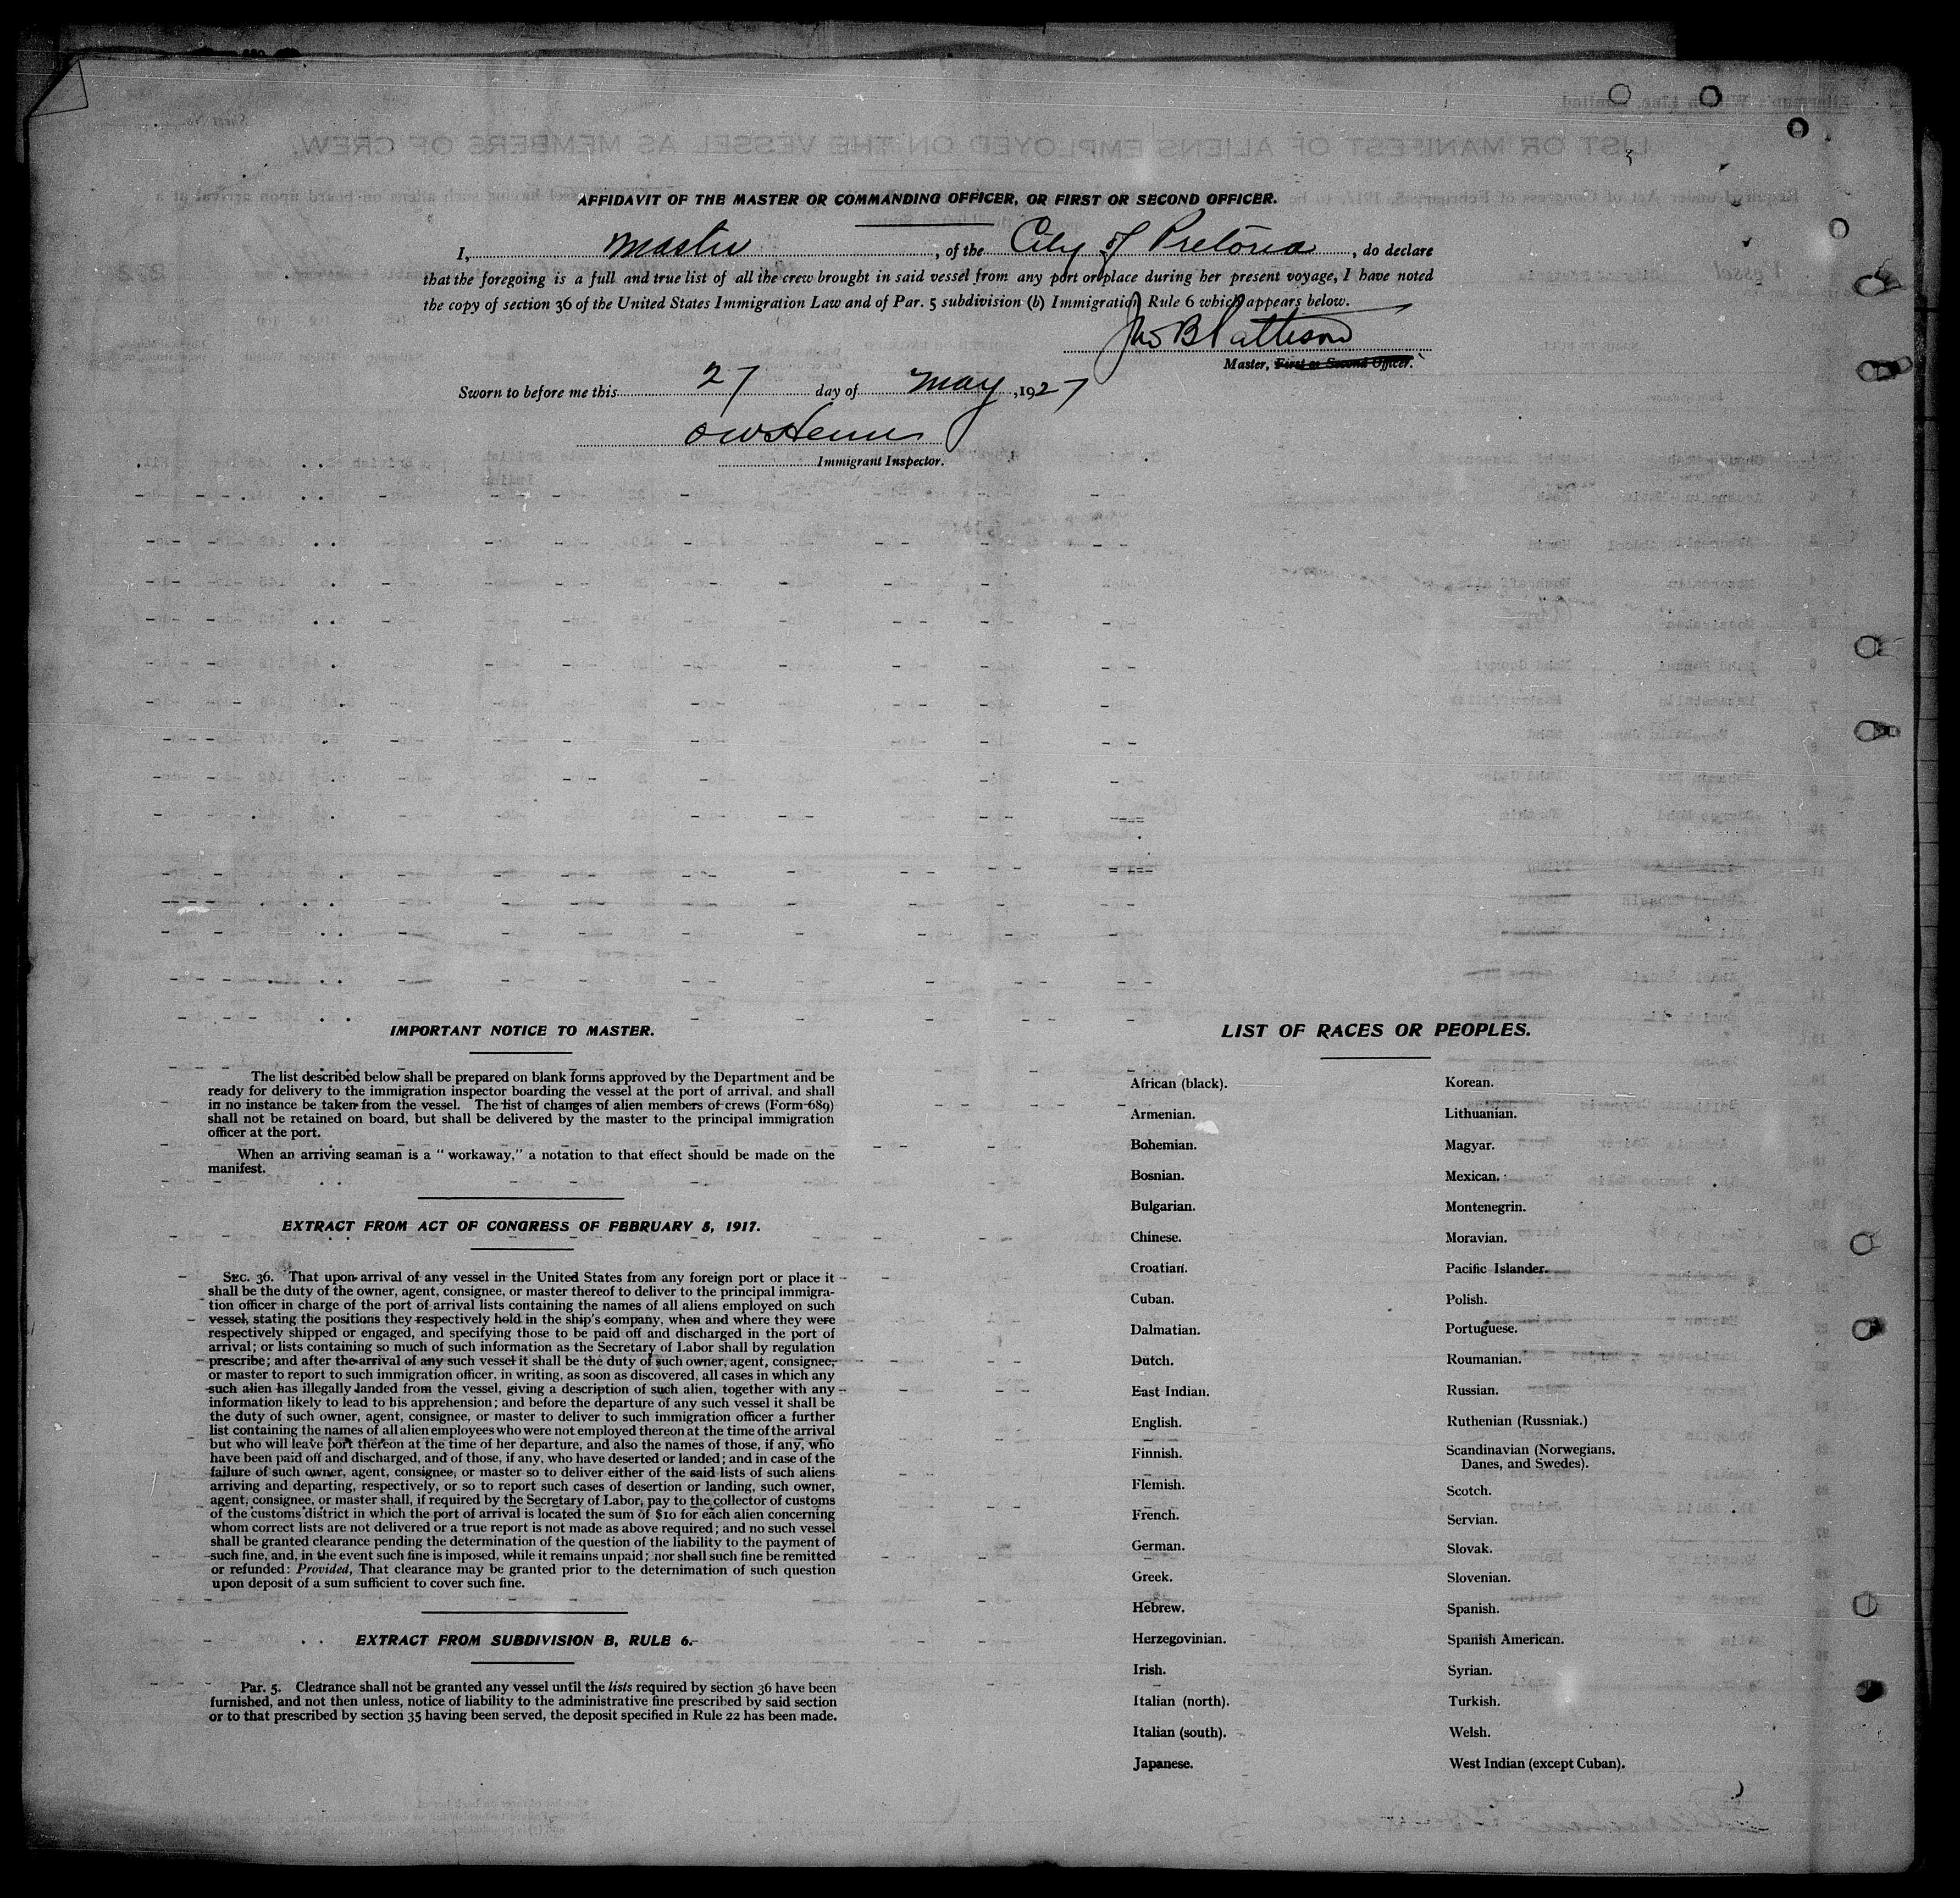 AFFIDAVIT OF THE MASTER OR COMMANDING OFFICER, OR FIRST OR SECOND OFFICER.
I, Master, of the City of Pretoria, do declare
that the foregoing is a full and true list of all the crew brought in said vessel from any port or place during her present voyage, I have noted
the copy of section 36 of the United States Immigration Law and of Par. 5 subdivision (b) Immigration Rule 6 which appears below.
Jno B Pattison
Master, First or Second Officer.
Sworn to before me this 27 day of May, 1927
Immigrant Inspector.
IMPORTANT NOTICE TO MASTER.
The list described below shall be prepared on blank forms approved by the Department and be
ready for delivery to the immigration inspector boarding the vessel at the port of arrival, and shall
in no instance be taken from the vessel. The list of changes of alien members of crews (Form 689)
shall not be retained on board, but shall be delivered by the master to the principal immigration
officer at the port.
When an arriving seaman is a "workaway," a notation to that effect should be made on the
manifest.
EXTRACT FROM ACT OF CONGRESS OF FEBRUARY 5, 1917.
SEC. 36. That upon arrival of any vessel in the United States from any foreign port or place it
shall be the duty of the owner, agent, consignee, or master thereof to deliver to the principal immigra-
tion officer in charge of the port of arrival lists containing the names of all aliens employed on such
vessel, stating the positions they respectively hold in the ship's company, when and where they were
respectively shipped or engaged, and specifying those to be paid off and discharged in the port of
arrival; or lists containing so much of such information as the Secretary of Labor shall by regulation
prescribe; and after the arrival of any such vessel it shall be the duty of such owner, agent, consignee,
or master to report to such immigration officer, in writing, as soon as discovered, all cases in which any
such alien has illegally landed from the vessel, giving a description of such alien, together with any
information likely to lead to his apprehension; and before the departure of any such vessel it shall be
the duty of such owner, agent, consignee, or master to deliver to such immigration officer a further
list containing the names of all alien employees who were not employed thereon at the time of the arrival
but who will leave port thereon at the time of her departure, and also the names of those, if any, who
have been paid off and discharged, and of those, if any, who have deserted or landed; and in case of the
failure of such owner, agent, consignee, or master so to deliver either of the said lists of such aliens
arriving and departing, respectively, or so to report such cases of desertion or landing, such owner,
agent, consignee, or master shall, if required by the Secretary of Labor, pay to the collector of customs
of the customs district in which the port of arrival is located the sum of $10 for each alien concerning
whom correct lists are not delivered or a true report is not made as above required; and no such vessel
shall be granted clearance pending the determination of the question of the liability to the payment of
such fine, and, in the event such fine is imposed, while it remains unpaid; nor shall such fine be remitted
or refunded: Provided, That clearance may be granted prior to the deternimation of such question
upon deposit of a sum sufficient to cover such fine.
EXTRACT FROM SUBDIVISION B, RULE 6.
Par. 5. Clearance shall not be granted any vessel until the lists required by section 36 have been
furnished, and not then unless, notice of liability to the administrative fine prescribed by said section
or to that prescribed by section 35 having been served, the deposit specified in Rule 22 has been made.
LIST OF RACES OR PEOPLES.
African (black).
Armenian.
Bohemian.
Bosnian.
Bulgarian.
Chinese.
Croatian.
Cuban.
Dalmatian.
Dutch.
East Indian.
English.
Finnish.
Flemish.
French.
German.
Greek.
Hebrew.
Herzegovinian.
Irish.
Italian (north).
Italian (south).
Japanese.
Korean.
Lithuanian.
Magyar.
Mexican.
Montenegrin.
Moravian.
Pacific Islander.
Polish.
Portuguese.
Roumanian.
Russian.
Ruthenian (Russniak.)
Scandinavian (Norwegians,
Danes, and Swedes).
Scotch.
Servian.
Slovak.
Slovenian.
Spanish.
Spanish American.
Syrian.
Turkish.
Welsh.
West Indian (except Cuban).